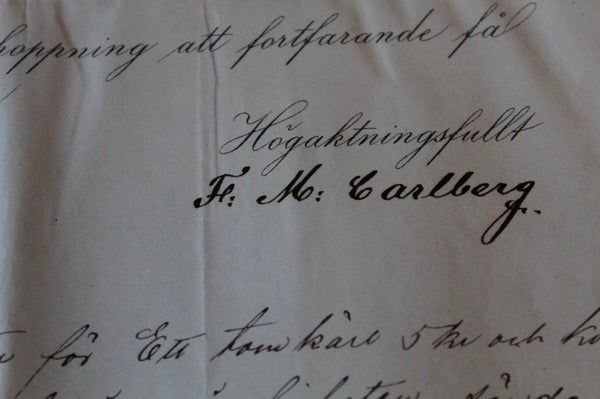 hoppning att fortfarande få
Högaktningsfullt
F: M: Carlberg.
för Ett tomkärl 5 kr och